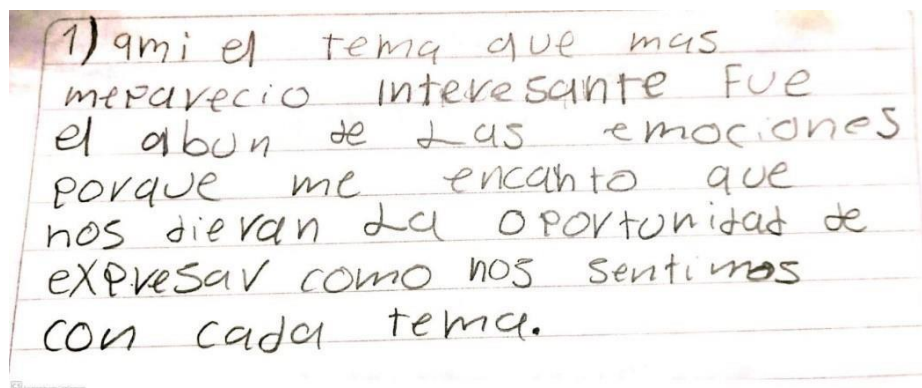 1) ami el tema que mas
meparecio interesante Fue
el abun de Las emociones
porque me encanto que
nos dieran La oportunidad de
expresar como nos sentimos
con cada tema.